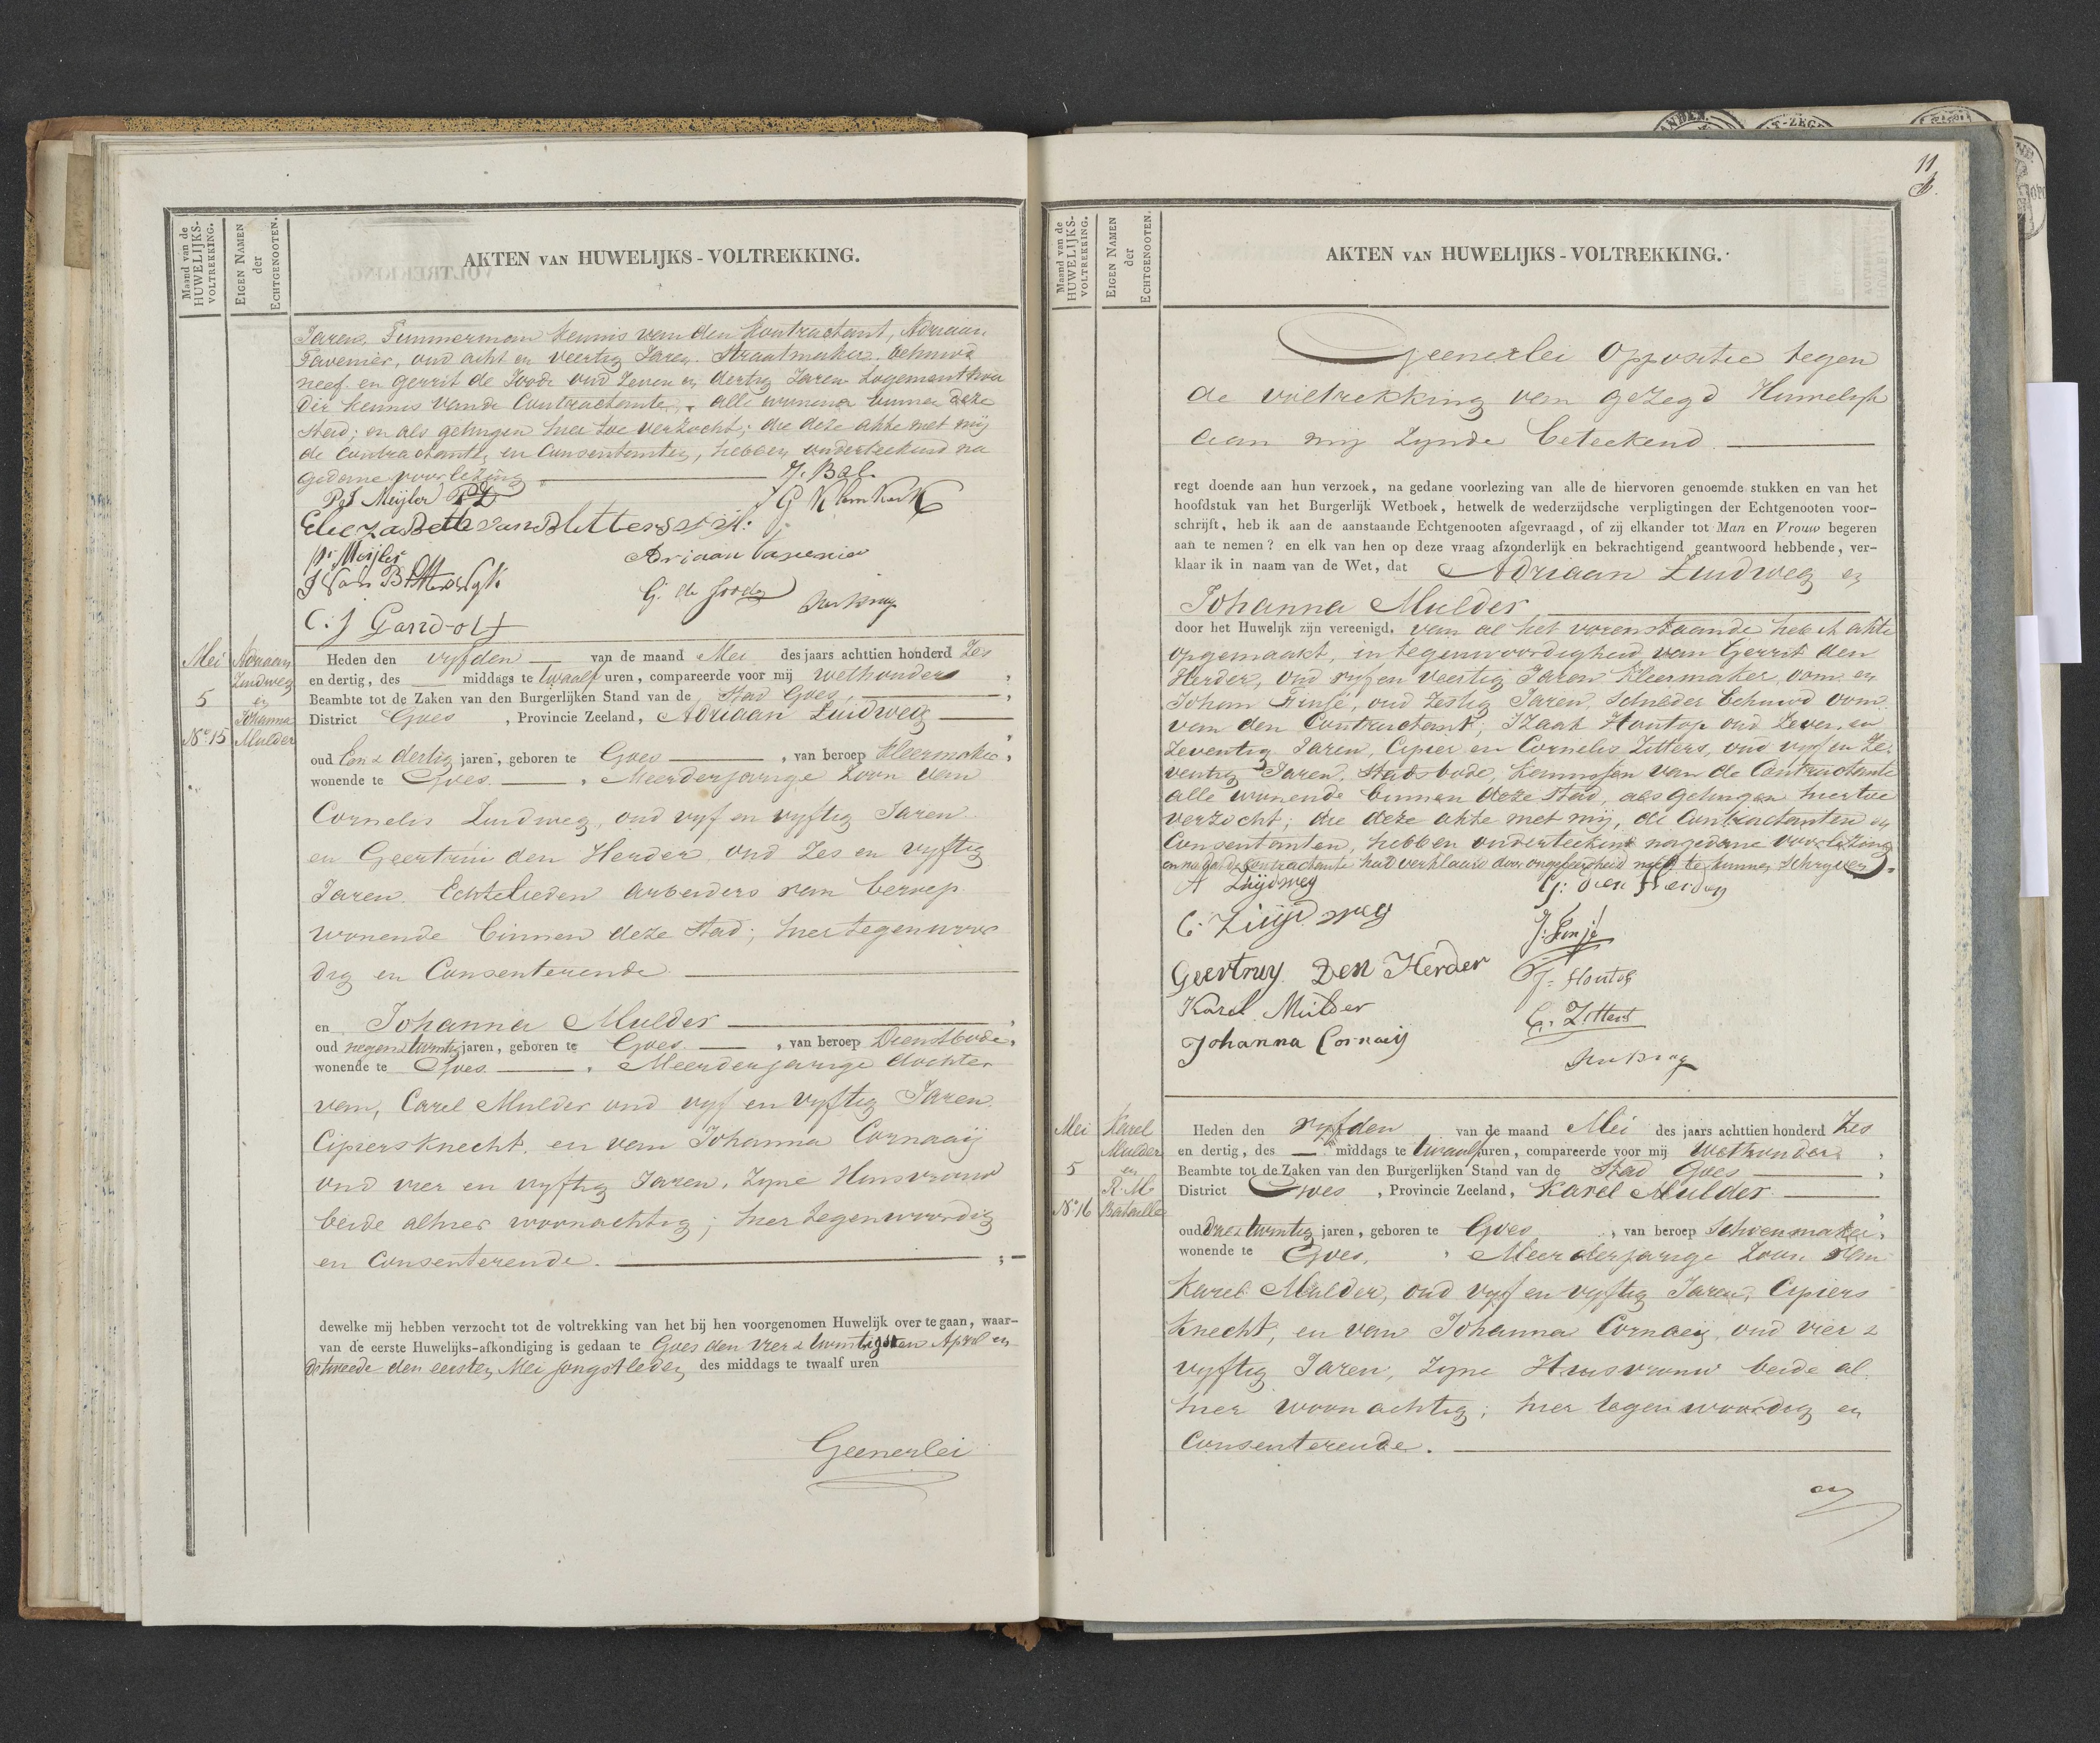 Maand van de
HUWELIJKS-
VOLTREKKING.
EIGEN NAMEN
der
ECHTGENOOTEN.
AKTEN VAN HUWELIJKS-VOLTREKKING.
Jaren, Timmerman kennis van den Contractant, Adriaan
Tavenier, oud acht en veertig Jaren Straatmaker behuwd
neef en Gerrit de Joode oud Zeven en dertig Jaren Logementhou
der kennis van de Contractante, alle wonende binnen deze
Stad; en als getuigen hier toe verzocht; die deze akte met mij
de Contractanten en Consentanten, hebben onderteekend na
gedane voorlezing
J. Bal
Meijler
G Klemkerk
Adriaan Tavenier
G. de Joode
C. J Gandolf
Mei
5
No. 15
Adriaan
Zuidweg
en
Johanna
Mulder
Heden den vyfden van de maand Mei des jaars achttien honderd Zes
en dertig, des middags te twaalf uren, compareerde voor mij Wethouder,
Beambte tot de Zaken van den Burgerlijken Stand van de Stad Goes,
District Goes, Provincie Zeeland, Adriaan Zuidweg
oud Een & dertig jaren, geboren te Goes, van beroep Kleermaker,
wonende te Goes. Meerderjarige Zoon van
Cornelis Zuidweg, oud vyf en vyftig Jaren
en Geertrui den Herder, oud Zes en vyftig
Jaren. Echtelieden Arbeiders van beroep
wonende binnen deze Stad; hier tegenwoor
dig en Consenterende.
en Johanna Mulder
oud negen & twintig jaren, geboren te Goes, van beroep Dienstbode,
wonende te Goes. Meerderjarige dochter
van, Carel Mulder oud vyf en vyftig Jaren.
Cipiersknecht. en van Johanna Cornaaij
oud vier en vyftig Jaren, Zyne Huisvrouw
beide alhier woonachtig; hier tegenwoordig
en Consenterende.
dewelke mij hebben verzocht tot de voltrekking van het bij hen voorgenomen Huwelijk over te gaan, waar-
van de eerste Huwelijks-afkondiging is gedaan te Goes den vier & twintigsten April en
de tweede den eersten Mei jongstleden des middags te twaalf uren
Geenerlei
11
Maand van de
HUWELIJKS-
VOLTREKKING.
EIGEN NAMEN
der
ECHTGENOOTEN.
AKTEN VAN HUWELIJKS-VOLTREKKING.
Geenerlei Oppositie tegen
de voltrekking van gezegd Huwelijk
aan mij Zynde beteekend.
regt doende aan hun verzoek, na gedane voorlezing van alle de hiervoren genoemde stukken en van het
hoofdstuk van het Burgerlijk Wetboek, hetwelk de wederzijdsche verpligtingen der Echtgenooten voor-
schrijft, heb ik aan de aanstaande Echtgenooten afgevraagd, of zij elkander tot Man en Vrouw begeren
aan te nemen? en elk van hen op deze vraag afzonderlijk en bekrachtigend geantwoord hebbende, ver-
klaar ik in naam van de Wet, dat Adriaan Zuidweg en
Johanna Mulder
door het Huwelijk zijn vereenigd. van al het vorenstaande heb ik akte
opgemaakt, in tegenwoordigheid van Gerrit den
Herder, oud vyf en veertig Jaren Kleermaker, oom en
Johan Finsé, oud Zestig Jaren, Schilder behuwd oom
van den Contractant; Izaak Houtop oud Zeven en
Zeventig Jaren, Cipier en Cornelis Zitters, oud vyf en Ze-
ventig Jaren, Stadsbode, kennissen van de Contractante
alle wonende binnen deze Stad, als getuigen hiertoe
verzocht; die deze akte met mij, de Contractanten en
Consentanten, hebben onderteekend na gedane voorlezing
en nadat de Contractante had verklaard door ongeleerdheid niet te kunnen Schryven.
A Zuijdweg
G: den Herder
C. Zuijdweg
Geertruy Den Herder
J: Houtop
Karel Mulder
C. Zitters
Johanna Cornaij
Mei
5
No. 16
Karel
Mulder
en
R. M.
Bataille
Heden den vyfden van de maand Mei des jaars achttien honderd Zes
en dertig, des middags te twaalf uren, compareerde voor mij Wethouder,
Beambte tot de Zaken van den Burgerlijken Stand van de Stad Goes,
District Goes, Provincie Zeeland, Karel Mulder
oud Drie & twintig jaren, geboren te Goes, van beroep Schoenmaker,
wonende te Goes, Meerderjarige Zoon van
Karel Mulder, oud vyf en vyftig Jaren, Cipiers
Knecht, en van Johanna Cornaeij, oud vier &
vyftig Jaren, Zyne Huisvrouw beide al
hier woonachtig; hier tegenwoordig en
Consenterende.
en